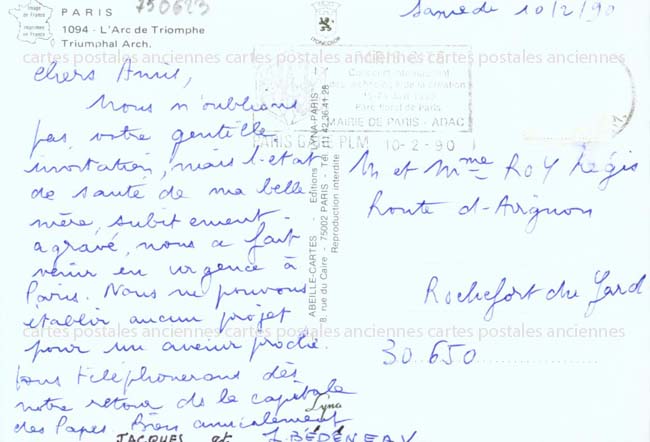 750623
Image de France
imprimée en France
PARIS
1094 - L'Arc de Triomphe
Triumphal Arch.
LYONCOLOR
Samedi 10/2/90
cartes postales anciennes cartes postales anciennes cartes postales anciennes
chers Amis,
Nous n'oublions
pas votre gentille
invitation, mais l'état
de santé de ma belle
mère, subitement
agravé, nous a fait
venir en urgence à
Paris. Nous ne pouvons
établir aucun projet
pour un avenir proche.
Vous téléphonerons dès
notre retour de la capitale
des Papes Bien amicalement
JACQUES et Lyna
BÉDÉNEAU
ABEILLE-CARTES - Editions LYNA-PARIS
8, rue du Caire - 75002 PARIS - Tél. (1) 42.36.41.28
Reproduction interdite
Parc floral de Paris
MAIRIE DE PARIS - ADAC
PARIS GARE PLM 10-2-90
M et Mme ROY Régis
Route d'Avignon
Rochefort du Gard
30650
cartes postales anciennes cartes postales anciennes cartes postales anciennes